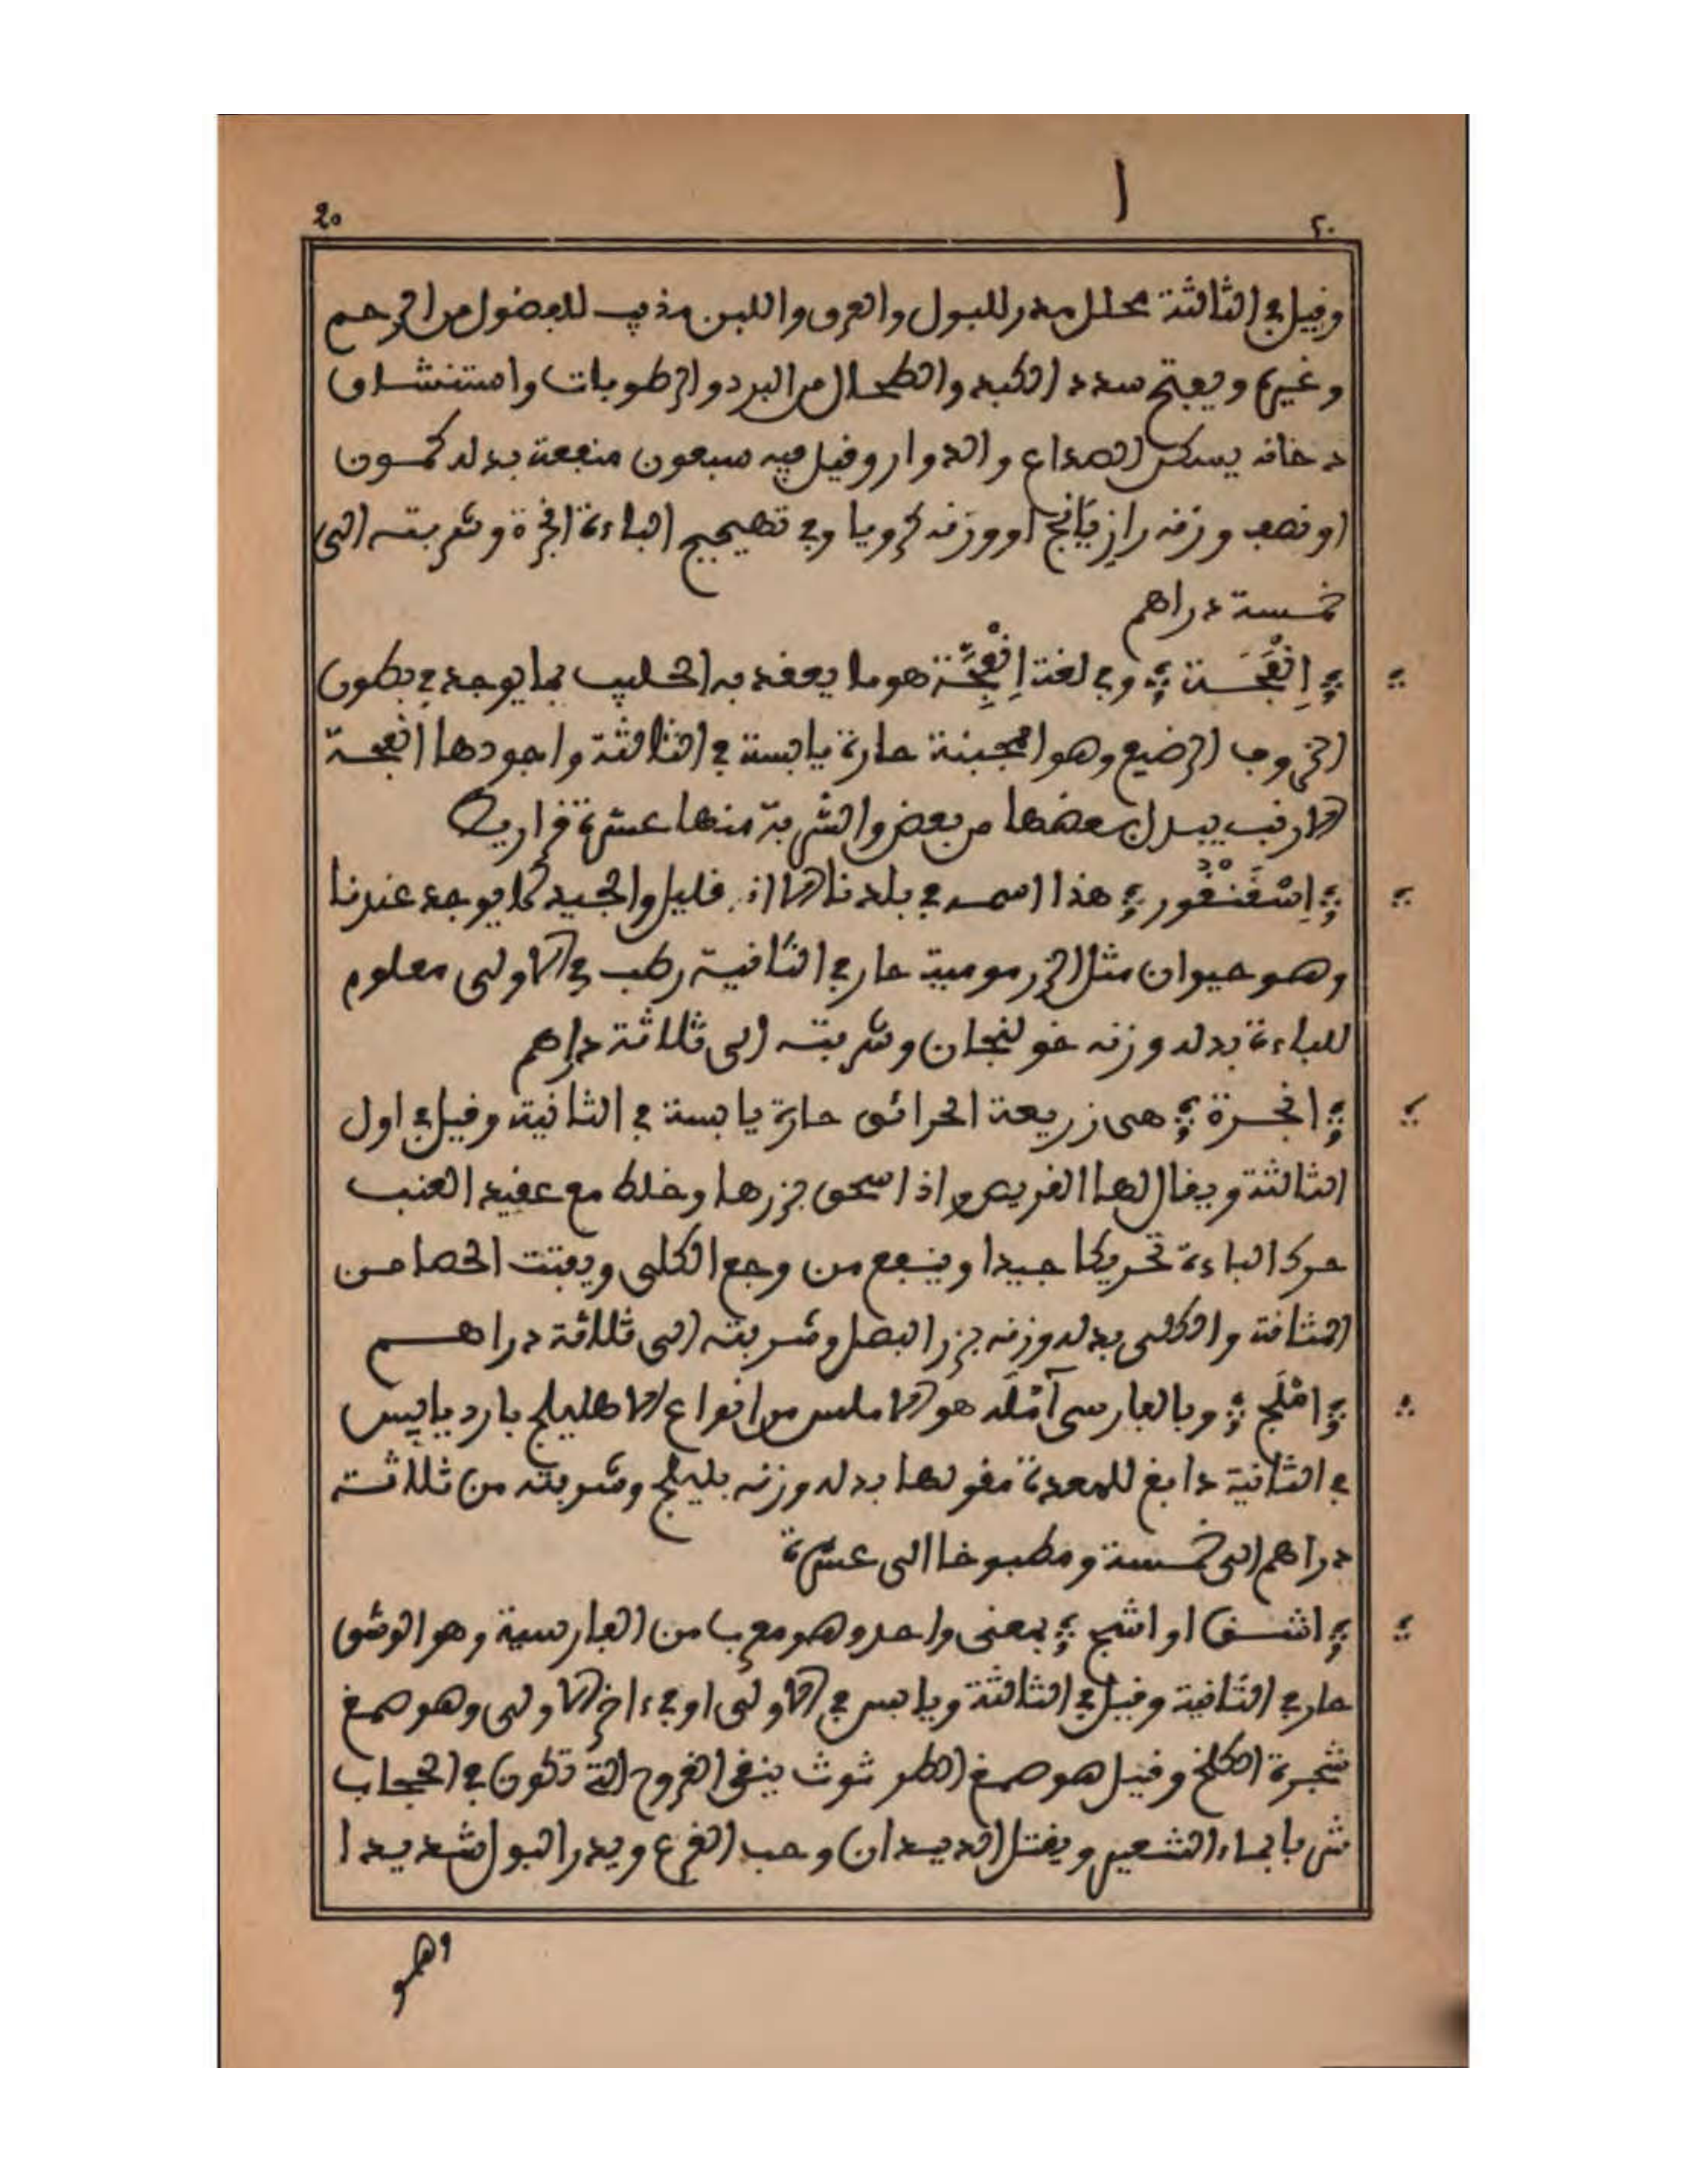 ا
20 ٢٠
وقيل في الثالثة محلل مدر للبول والعرق واللبن مذيب للفضول من الرحم
وغيره ويفتح سدد الكبد والطحال من البرد والرطوبات واستنشاق
دخانه يسكن الصداع والدوار وقيل فيه سبعون منفعة بدله كمون
او نصف وزنه رازيانج او وزنه كرويا وفي تهييج الباءة انجرة وشربته الى
خمسة دراهم
؞ إنفَحَة ؞ وفي لغة إنفِحَّة هو ما يعقد به الحليب مما يوجد في بطون
الخروف الرضيع وهو المجبنة حارة يابسة في الثالثة واجودها انفحة
الارنب يبدل بعضها من بعض والشربة منها عشرة قراريط
؞ إسْقَنْقُور ؞ هذا اسمه في بلدنا الان قليل والجيد لا يوجد عندنا
وهو حيوان مثل الزرمومية حار في الثانية رطب في الاولى معلوم
للباءة بدله وزنه خولنجان وشربته الى ثلاثة دراهم
؞ انجرة ؞ هي زريعة الحرائق حارة يابسة في الثانية وقيل في اول
الثالثة ويقال لها القريص واذا سحق بزرها وخلط مع عقيد العنب
حرك الباءة تحريكا جيدا وينفع من وجع الكلى ويفتت الحصا من
المثانة والكلى بدله وزنه بزر البصل وشربته الى ثلاثة دراهم
؞ امْلَج ؞ وبالفارسي آمْلَه هو الاملس من انواع الاهليلج بارد يابس
في الثانية دابغ للمعدة مقو لها بدله وزنه بليلج وشربته من ثلاثة
دراهم الى خمسة ومطبوخا الى عشرة
؞ اشق او اشج ؞ بمعنى واحد وهو معرب من الفارسية وهو الوشق
حار في الثانية وقيل في الثالثة ويابس في الاولى او في ءاخر الاولى وهو صمغ
شجرة الكلخ وقيل هو صمغ الطرثوث ينقي القروح التي تكون في الحجاب
شربا بماء الشعير ويقتل الديدان وحب القرع ويدر البول شديدا
وهو